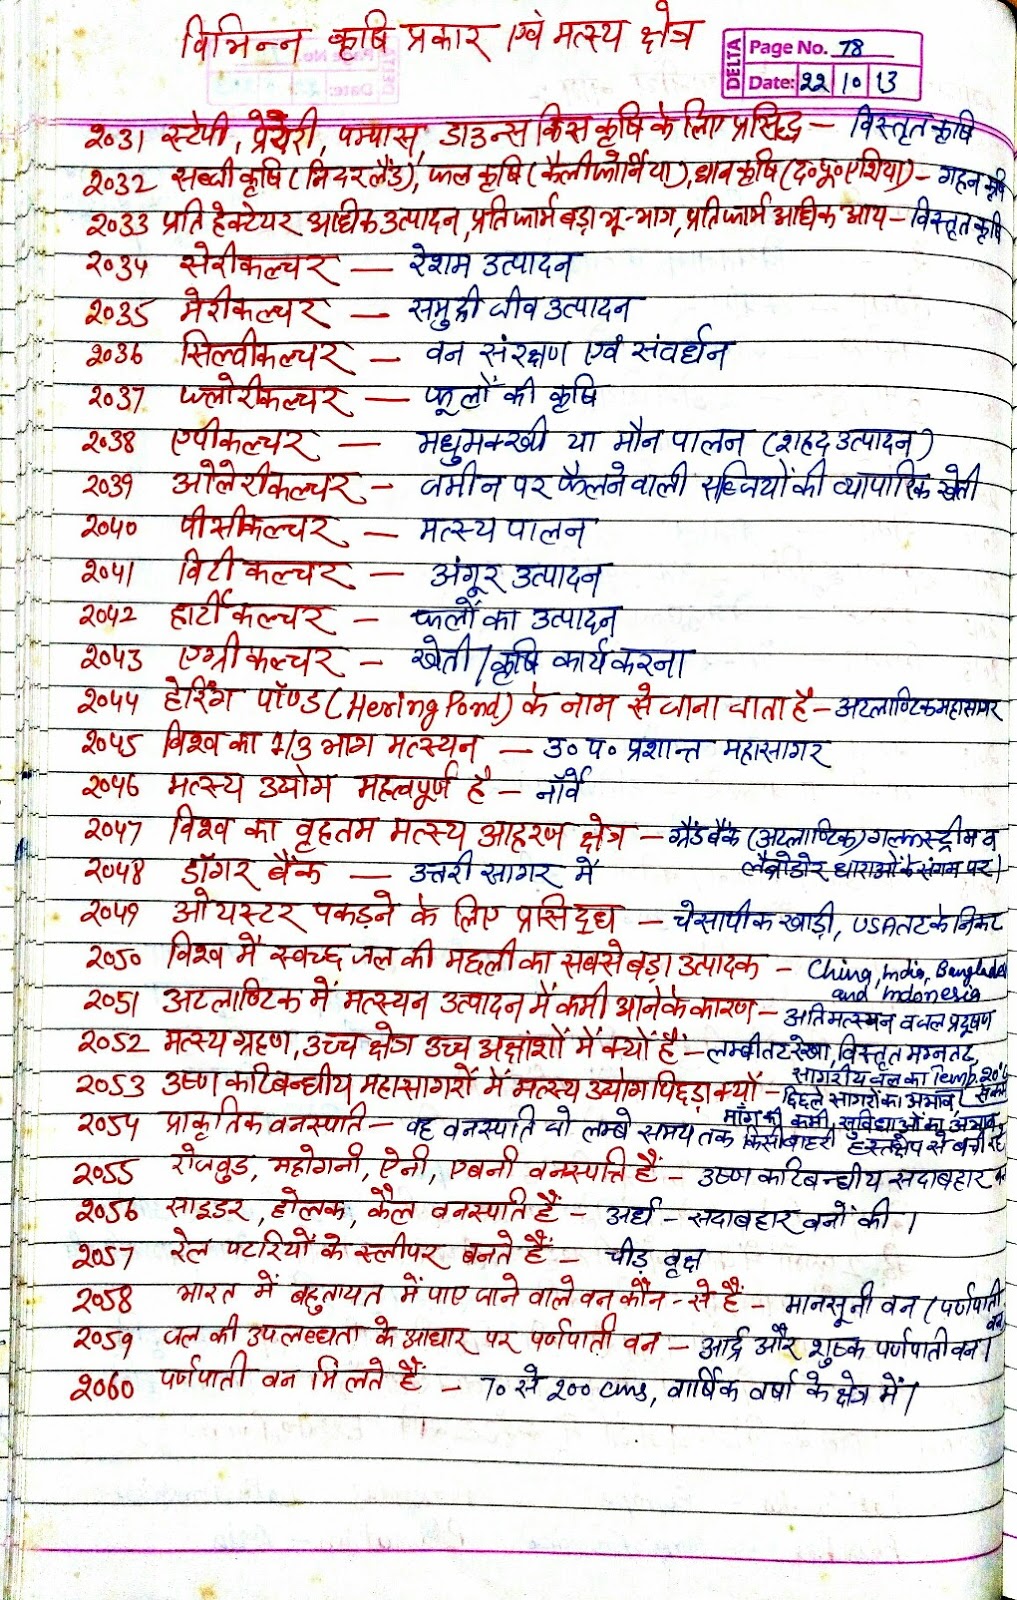 विभिन्न कृषि प्रकार एवं मत्स्य क्षेत्र
DELTA
Page No. 78
Date: 22 10 13
2031 स्टेपी, प्रेयरी, पम्पास, डाउन्स किस कृषि के लिए प्रसिद्ध – विस्तृत कृषि
2032 सब्जी कृषि (निदरलैंड), फल कृषि (कैलीफोर्निया), धान कृषि (द॰पू॰एशिया) – गहन कृषि
2033 प्रति हेक्टेयर अधिक उत्पादन, प्रति फार्म बड़ा भू-भाग, प्रति फार्म अधिक आय – विस्तृत कृषि
2034 सेरीकल्चर — रेशम उत्पादन
2035 मेरीकल्चर — समुद्री जीव उत्पादन
2036 सिल्वीकल्चर — वन संरक्षण एवं संवर्धन
2037 फ्लोरीकल्चर — फूलों की कृषि
2038 एपीकल्चर — मधुमक्खी या मौन पालन (शहद उत्पादन)
2039 ओलेरीकल्चर – जमीन पर फैलने वाली सब्जियों की व्यापारिक खेती
2040 पीसीकल्चर — मत्स्य पालन
2041 विटी कल्चर — अंगूर उत्पादन
2042 हार्टीकल्चर – फलों का उत्पादन
2043 एग्रीकल्चर – खेती/कृषि कार्य करना
2044 हेरिंग पॉण्ड (Herring Pond) के नाम से जाना जाता है – अटलाण्टिक महासागर
2045 विश्व का 1/3 भाग मत्स्यन — उ॰ प॰ प्रशान्त महासागर
2046 मत्स्य उद्योग महत्वपूर्ण है – नॉर्वे
2047 विश्व का वृहतम मत्स्य आहरण क्षेत्र – ग्रैंड बैंक (अटलाण्टिक) गल्फस्ट्रीम व
लैब्रोडोर धाराओं के संगम पर।
2048 डॉगर बैंक — उत्तरी सागर में
2049 ओयस्टर पकड़ने के लिए प्रसिद्ध – चेसापीक खाड़ी, USA तट के निकट
2050 विश्व में स्वच्छ जल की मछली का सबसे बड़ा उत्पादक – China, India, Bangladesh
and Indonesia
2051 अटलाण्टिक में मत्स्यन उत्पादन में कमी आने के कारण – अतिमत्स्यन व जल प्रदूषण
2052 मत्स्य ग्रहण, उच्च क्षेत्र उच्च अक्षांशों में क्यों हैं – लम्बी तट रेखा, विस्तृत मग्नतट,
सागरीय जल का Temp. 20°C
2053 उष्ण कटिबन्धीय महासागरों में मत्स्य उद्योग पिछड़ा क्यों – छिछले सागरों का अभाव,
माँग की कमी, सुविधाओं का अभाव,
2054 प्राकृतिक वनस्पति – वह वनस्पति जो लम्बे समय तक किसी बाहरी हस्तक्षेप से बची रहे
2055 रोजवुड, महोगनी, ऐनी, एबनी वनस्पति हैं – उष्ण कटिबन्धीय सदाबहार वन
2056 साइडर, होलक, कैल वनस्पति हैं – अर्ध – सदाबहार वनों की।
2057 रेल पटरियों के स्लीपर बनते हैं – चीड़ वृक्ष
2058 भारत में बहुतायत में पाए जाने वाले वन कौन-से हैं – मानसूनी वन (पर्णपाती
वन)
2059 जल की उपलब्धता के आधार पर पर्णपाती वन – आर्द्र और शुष्क पर्णपाती वन।
2060 पर्णपाती वन मिलते हैं – 70 से 200 cms, वार्षिक वर्षा के क्षेत्र में।